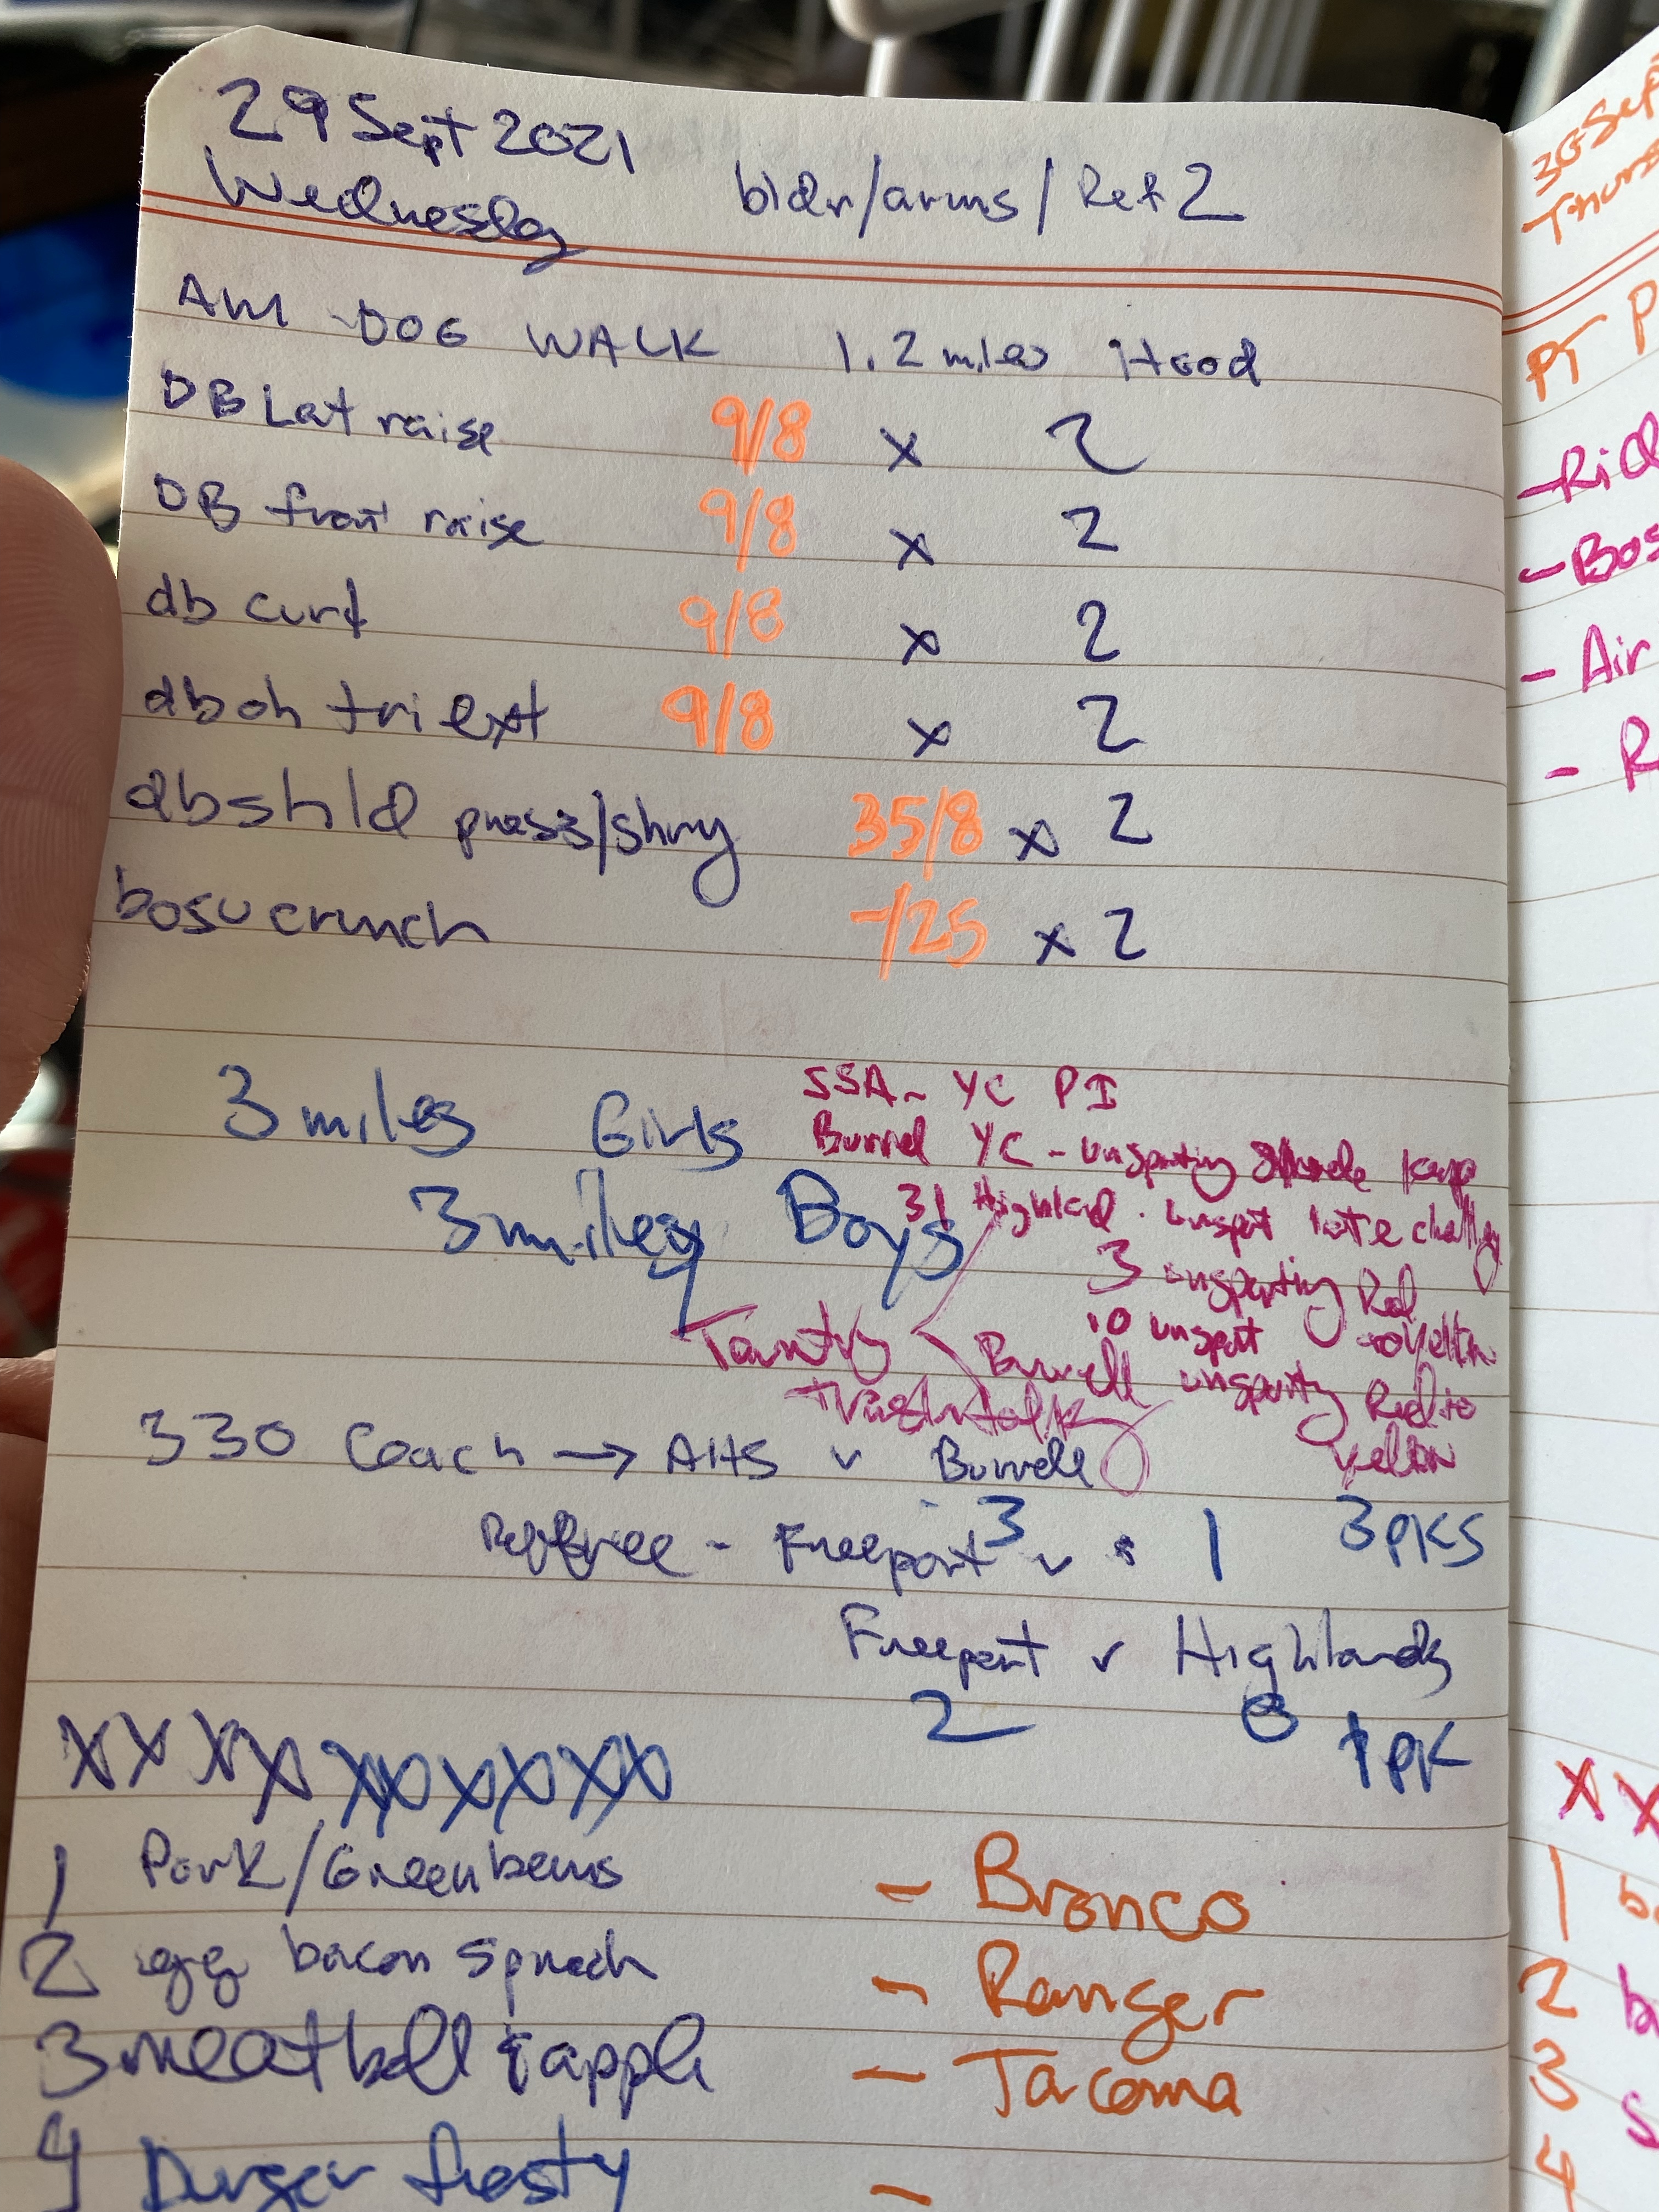 29 Sept 2021
Wednesday bldr/arms/Ref 2
AM DOG WALK 1.2 miles Hood
DB Lat raise 9/8 x 2
DB front raise 9/8 x 2
db curl 9/8 x 2
db oh tri ext 9/8 x 2
db shld press/shrug 35/8 x 2
bosu crunch -/25 x 2
3 miles Girls
3 miles Boys
SSA - YC PI
Burrel YC - unsporting
31 Highland - unsport late challenge
3 unsporting Red
10 unsport
Burrell unsporting Red to
yellow
Taunting
trash talk
330 Coach → AHS v Burrell
Referee - Freeport 3 v 1 3 PKS
Freeport v Highlands
2 0 1 PK
X X X X X X X X X X
1 Pork/Green beans - Bronco
2 egg bacon spinach - Ranger
3 meatball & apple - Tacoma
4 Burger frosty -
30 Sept
Thurs
PT P
- Rid
- Bos
- Air
- R
X X
1 b
2 b
3 S
4